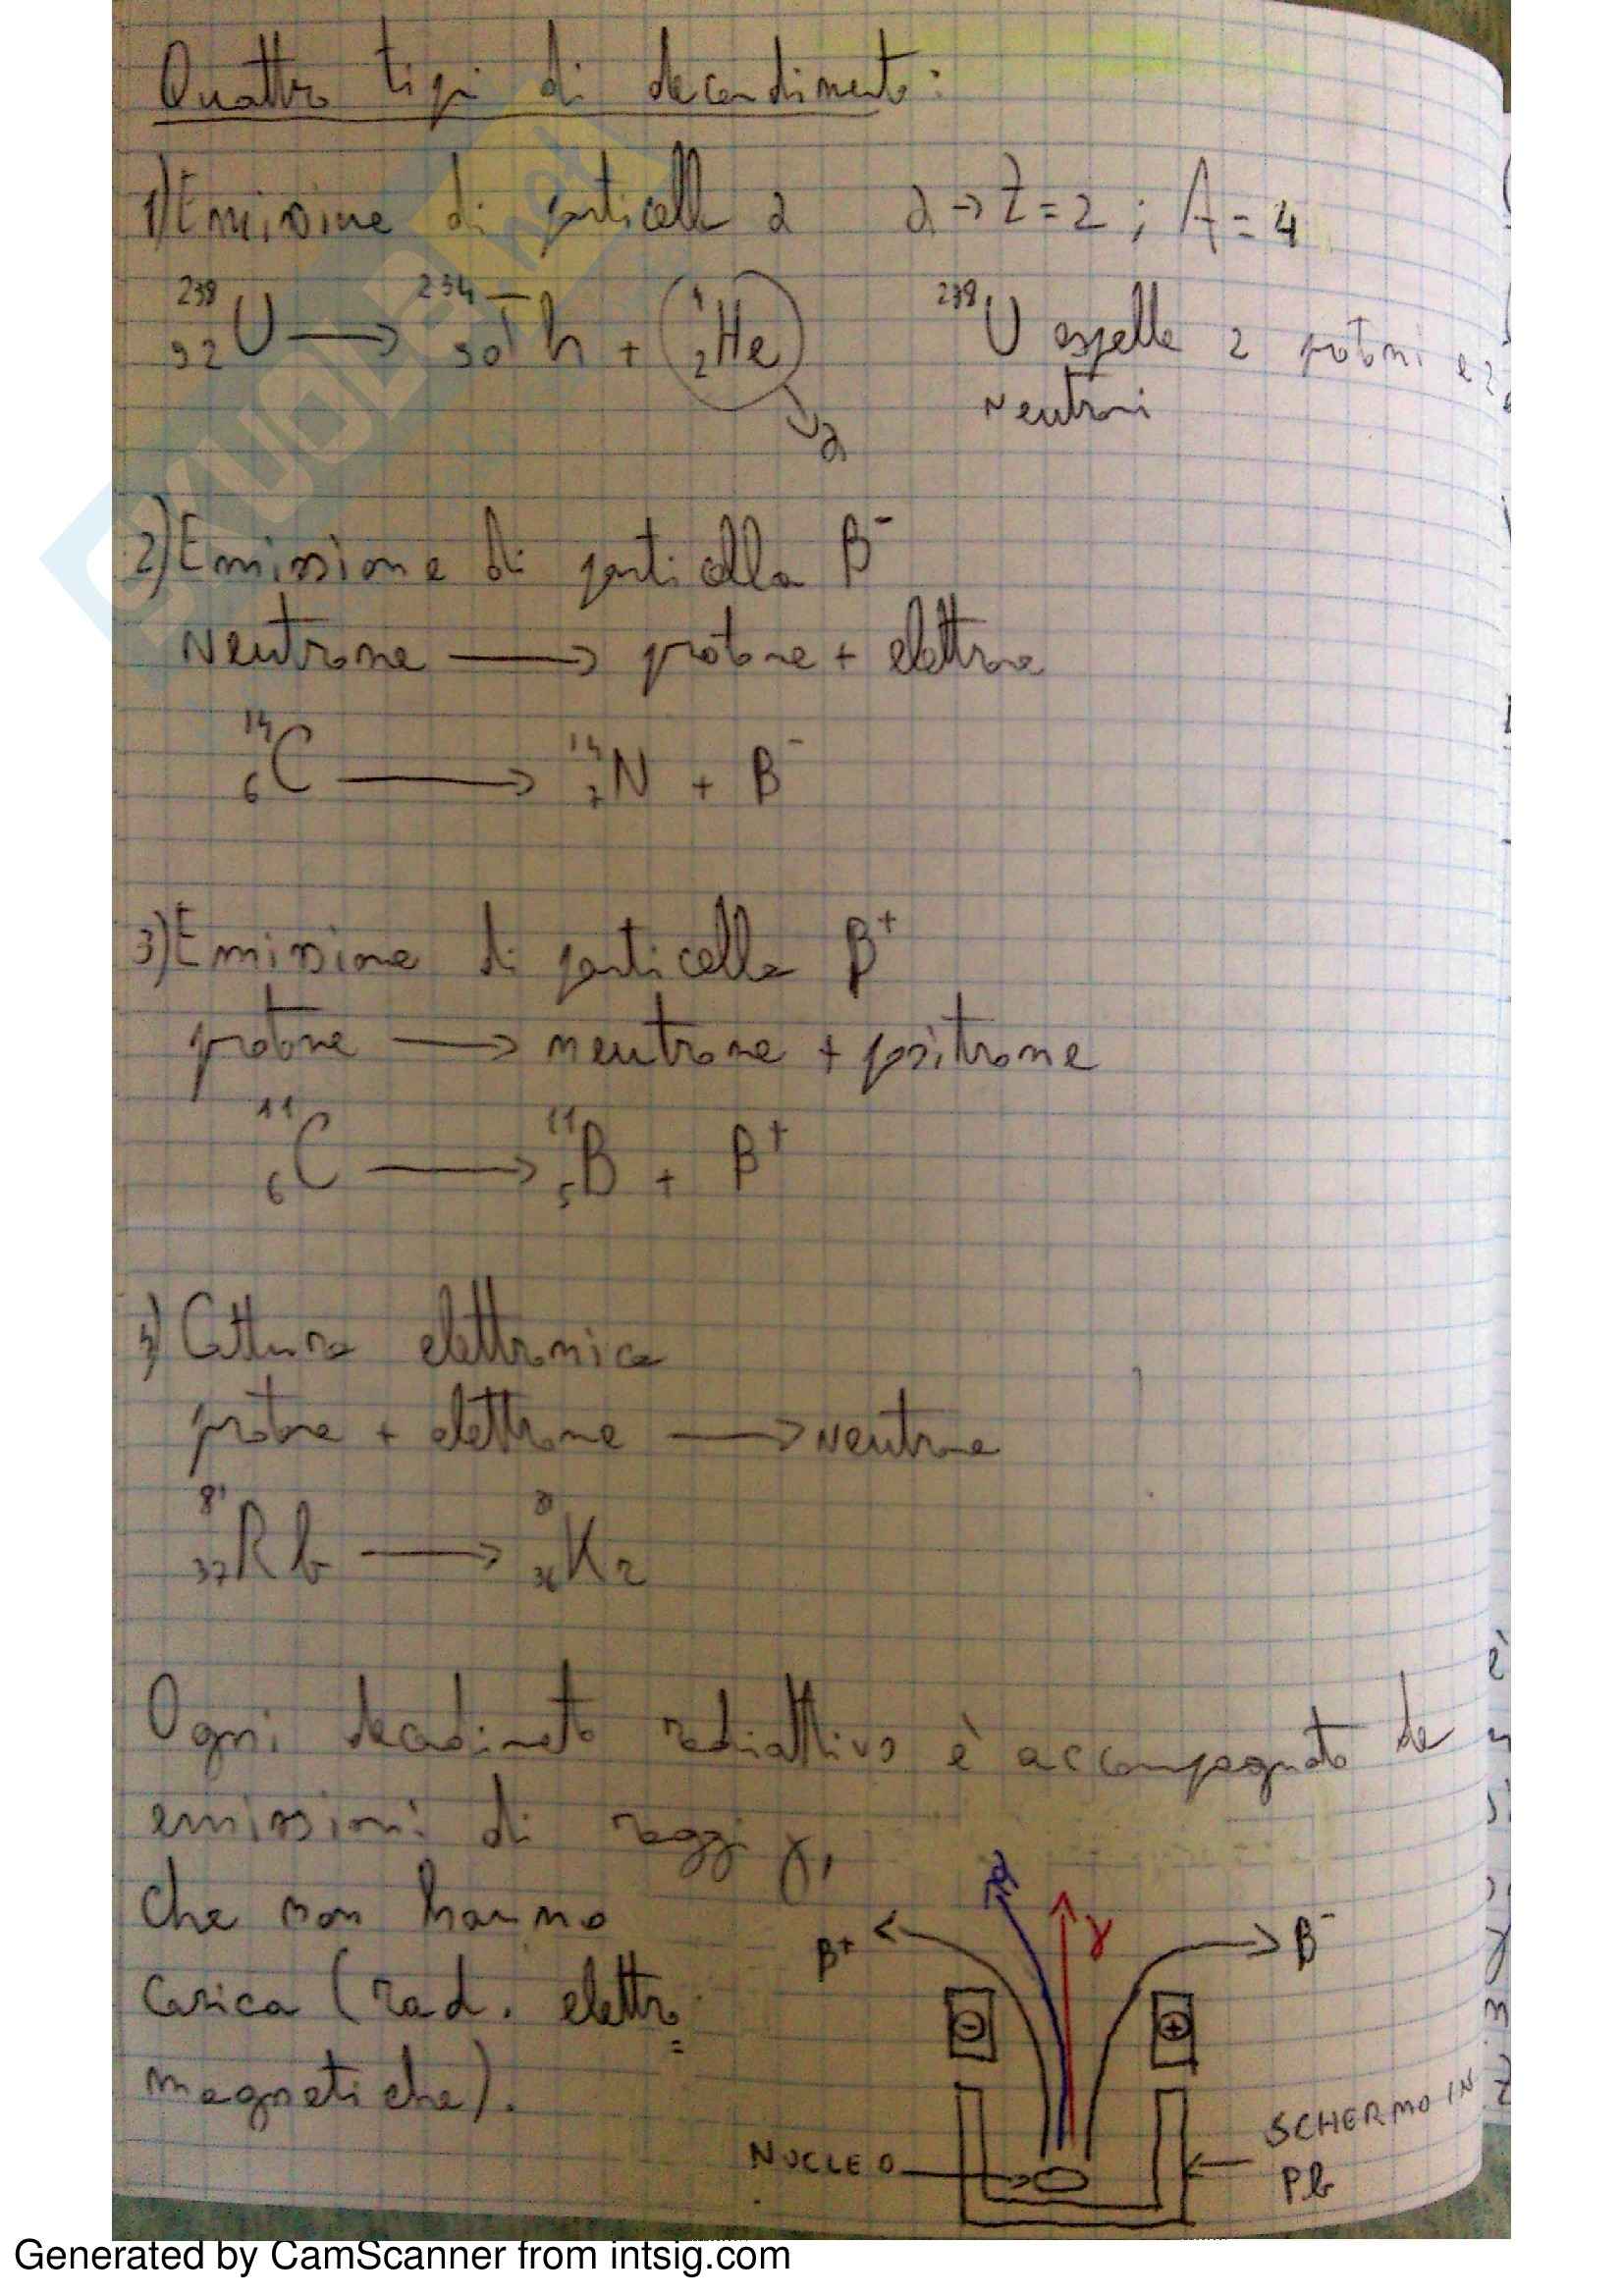 Quattro tipi di decadimento:
1) Emissione di particella α α → Z = 2 ; A = 4
²³⁸₉₂U → ²³⁴₉₀Th + ⁴₂He ²³⁸U espelle 2 protoni e 2
neutroni
α
2) Emissione di particella β⁻
Neutrone → protone + elettrone
¹⁴₆C → ¹⁴₇N + β⁻
3) Emissione di particella β⁺
protone → neutrone + positrone
¹¹₆C → ¹¹₅B + β⁺
4) Cattura elettronica
protone + elettrone → neutrone
⁸¹₃₇Rb → ₃₆Kr
Ogni decadimento radiattivo è accompagnato da
emissioni di raggi γ,
che non hanno
carica (rad. elettro=
magnetiche).
α
γ
β⁺
β⁻
-
+
NUCLEO
SCHERMO IN
Pb
SKUOLA.net
Generated by CamScanner from intsig.com